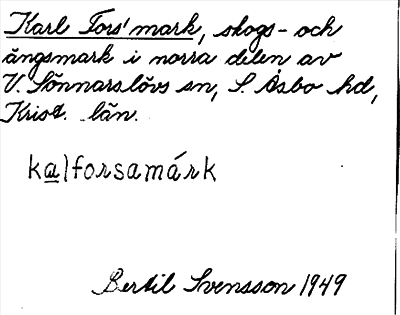 Karl Tors' mark, skogs- och
ängsmark i norra delen av
V. Sönnarslövs sn, S. Åsbo hd,
Krisd. län.
kalforsamárk
Bertil Svensson 1949